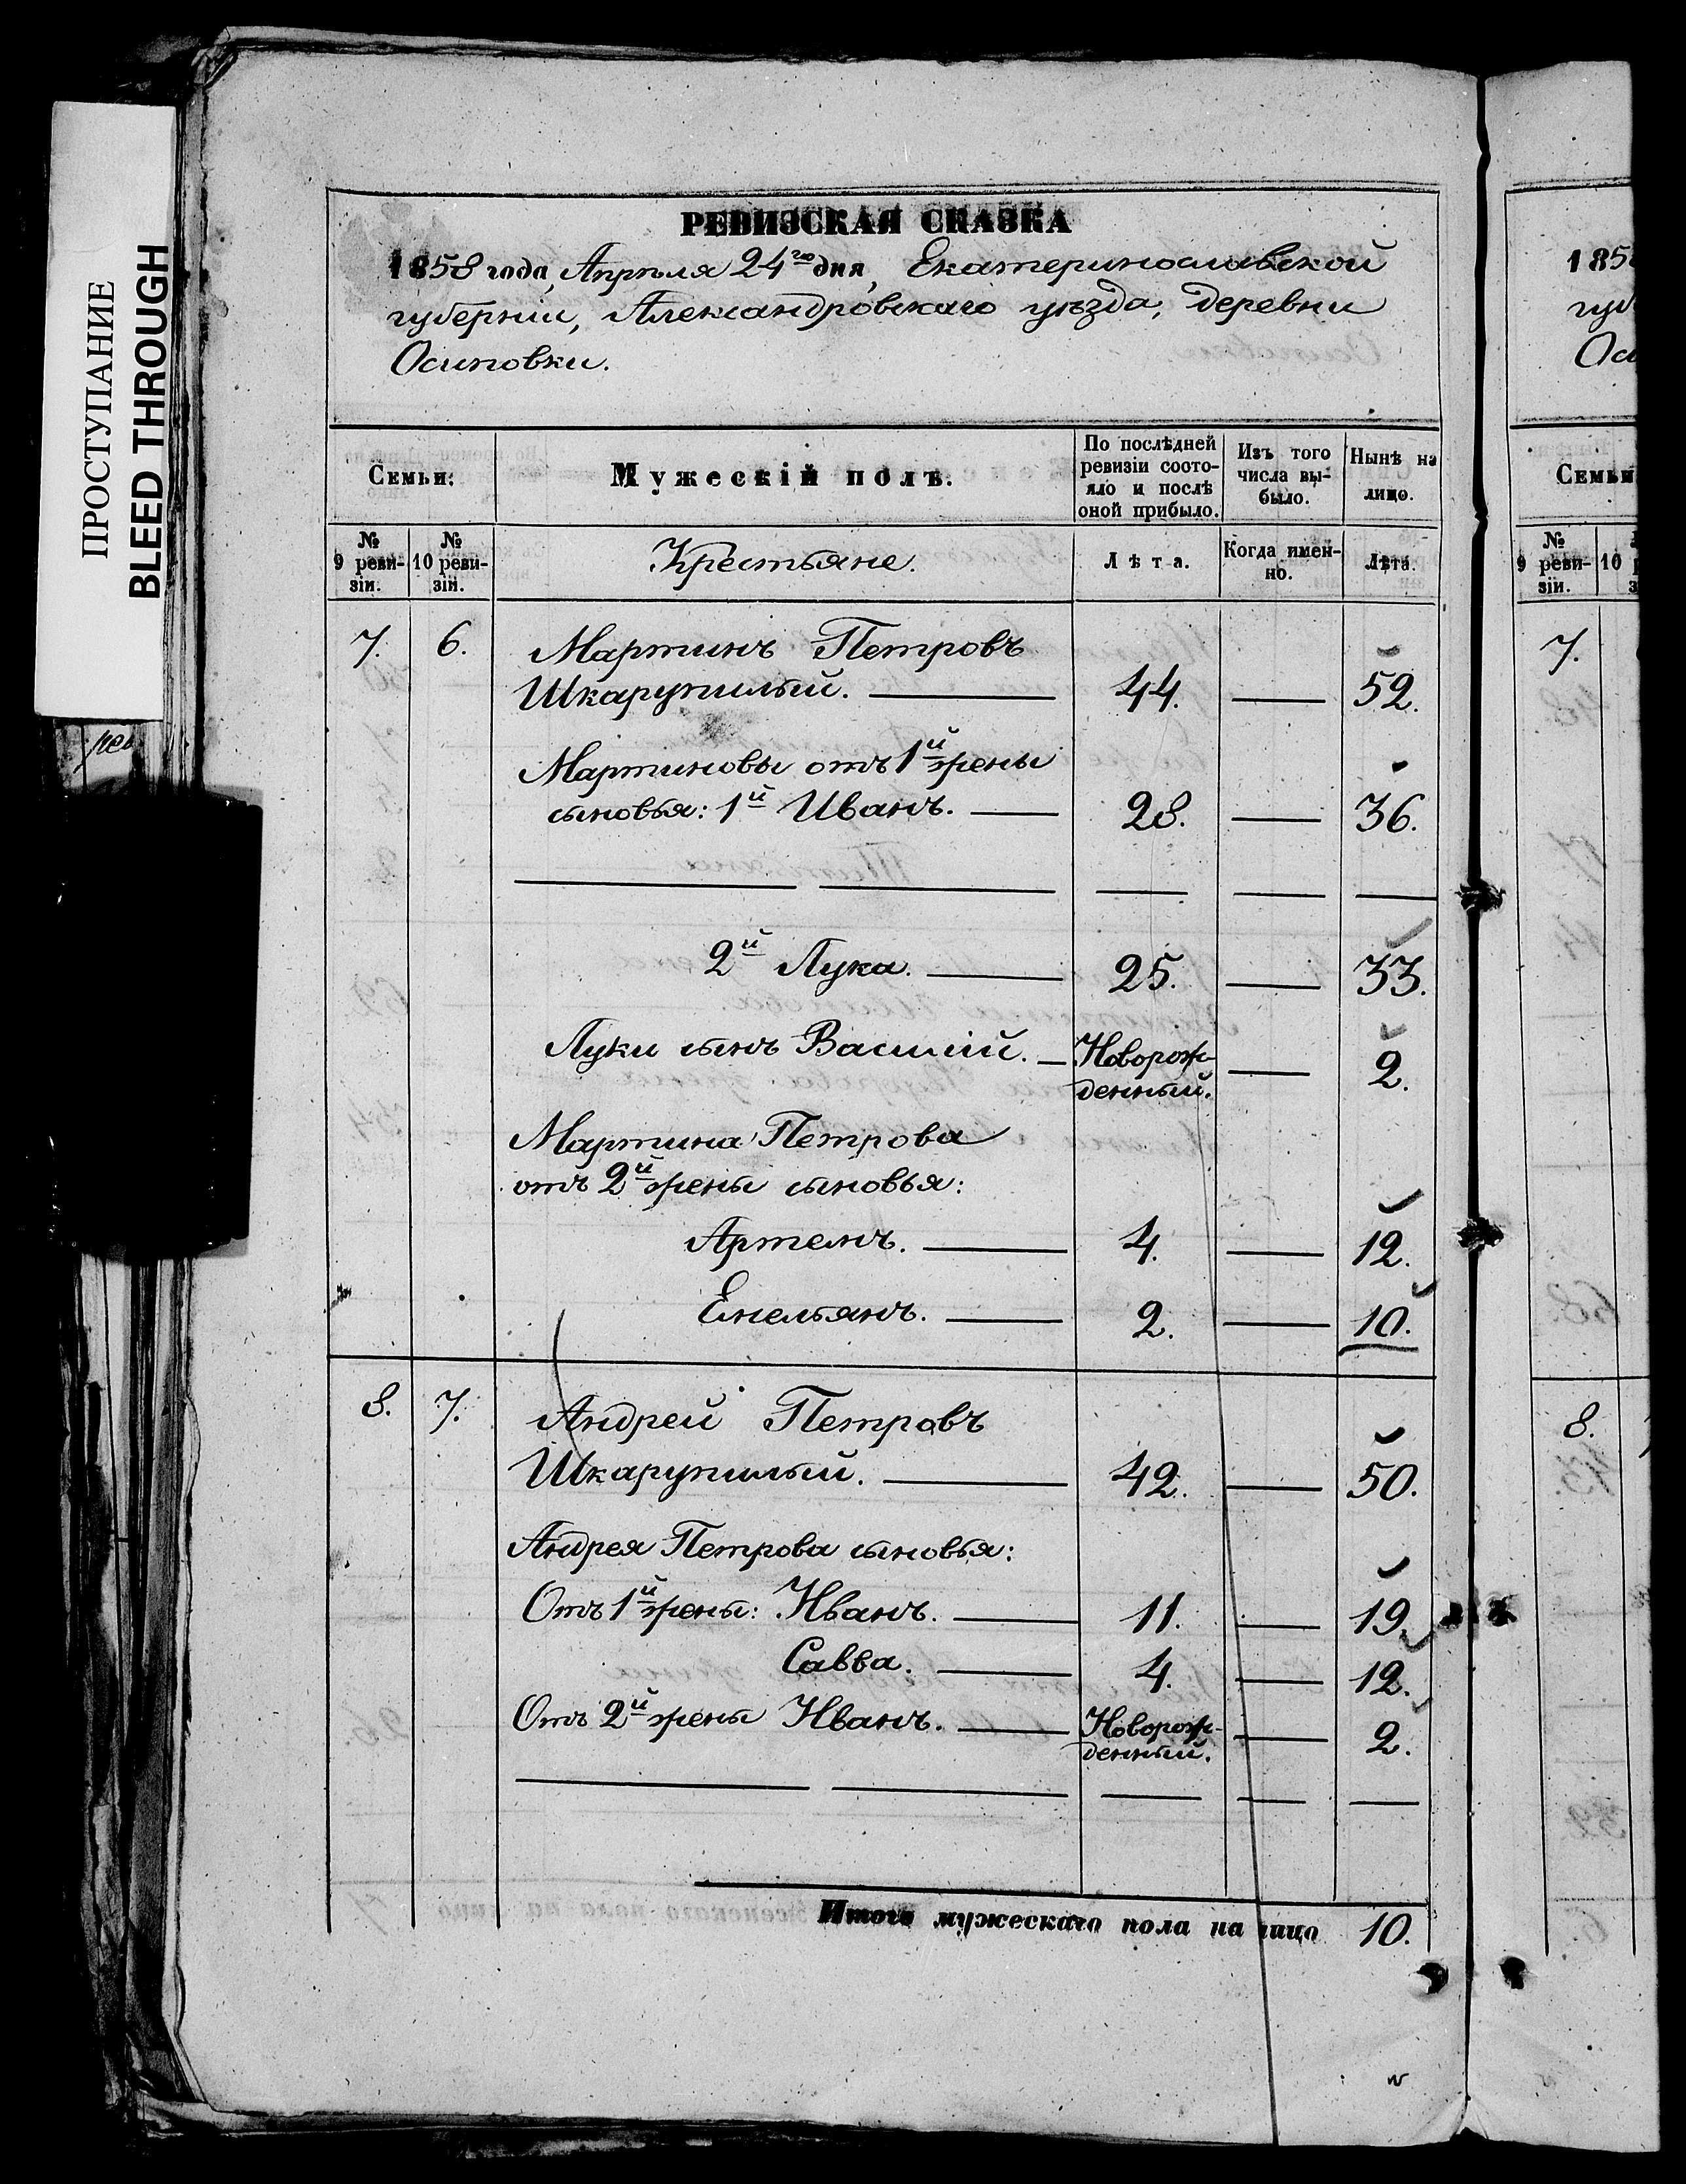 ПРОСТУПАНИЕ
BLEED THROUGH
РЕВИЗСКАЯ СКАЗКА
1858 года, Апрѣля 24го дня, Екатеринославской
губерніи, Александровскаго уѣзда, деревни
Осиповки.
Семьи: Мужескій полъ. По послѣдней ревизіи состояло и послѣ оной прибыло. Изъ того числа выбыло. Нынѣ на лицо.
№ 9 ревизіи. № 10 ревизіи. Крестьяне. Лѣта. Когда именно. Лѣта.
7. 6. Мартинъ Петровъ
Шкарупилый. 44. 52.
Мартиновы отъ 1й жены
сыновья: 1й Иванъ. 28. 36.
2й Лука. 25. 33.
Луки сынъ Василій. Новорож-
денный. 2.
Мартина Петрова
отъ 2й жены сыновья:
Артемъ. 4. 12.
Емельянъ. 2. 10.
8. 7. Андрей Петровъ
Шкарупилый. 42. 50.
Андрея Петрова сыновья:
Отъ 1й жены: Иванъ. 11. 19.
Савва. 4. 12.
Отъ 2й жены Иванъ. Новорож-
денный. 2.
Итого мужескаго пола на лицо 10.
185
Семьи
№ 9 ревизіи. 10
7.
8.